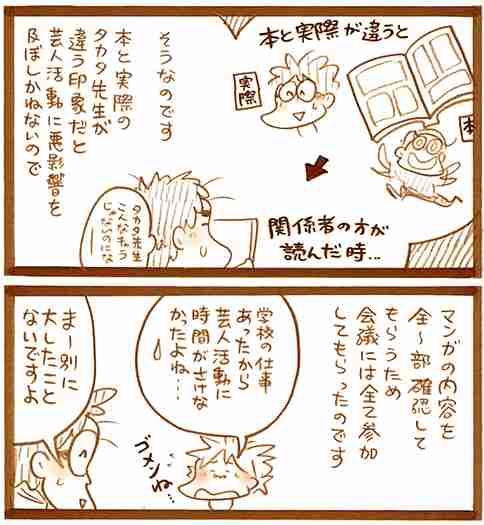 そうなのです
本と実際の
タカタ先生が
違う印象だと
芸人活動に悪影響を
及ぼしかねないので
本と実際が違うと
実際
本
関係者の方が
読んだ時…
タカタ先生
こんなキャラ
じゃないのにな
マンガの内容を
全〜部確認して
もらうため
会議には全て参加
してもらったのです
学校の仕事
あったから
芸人活動に
時間がさけな
かったよね…
ゴメンね…
まー別に
大したこと
ないですよ